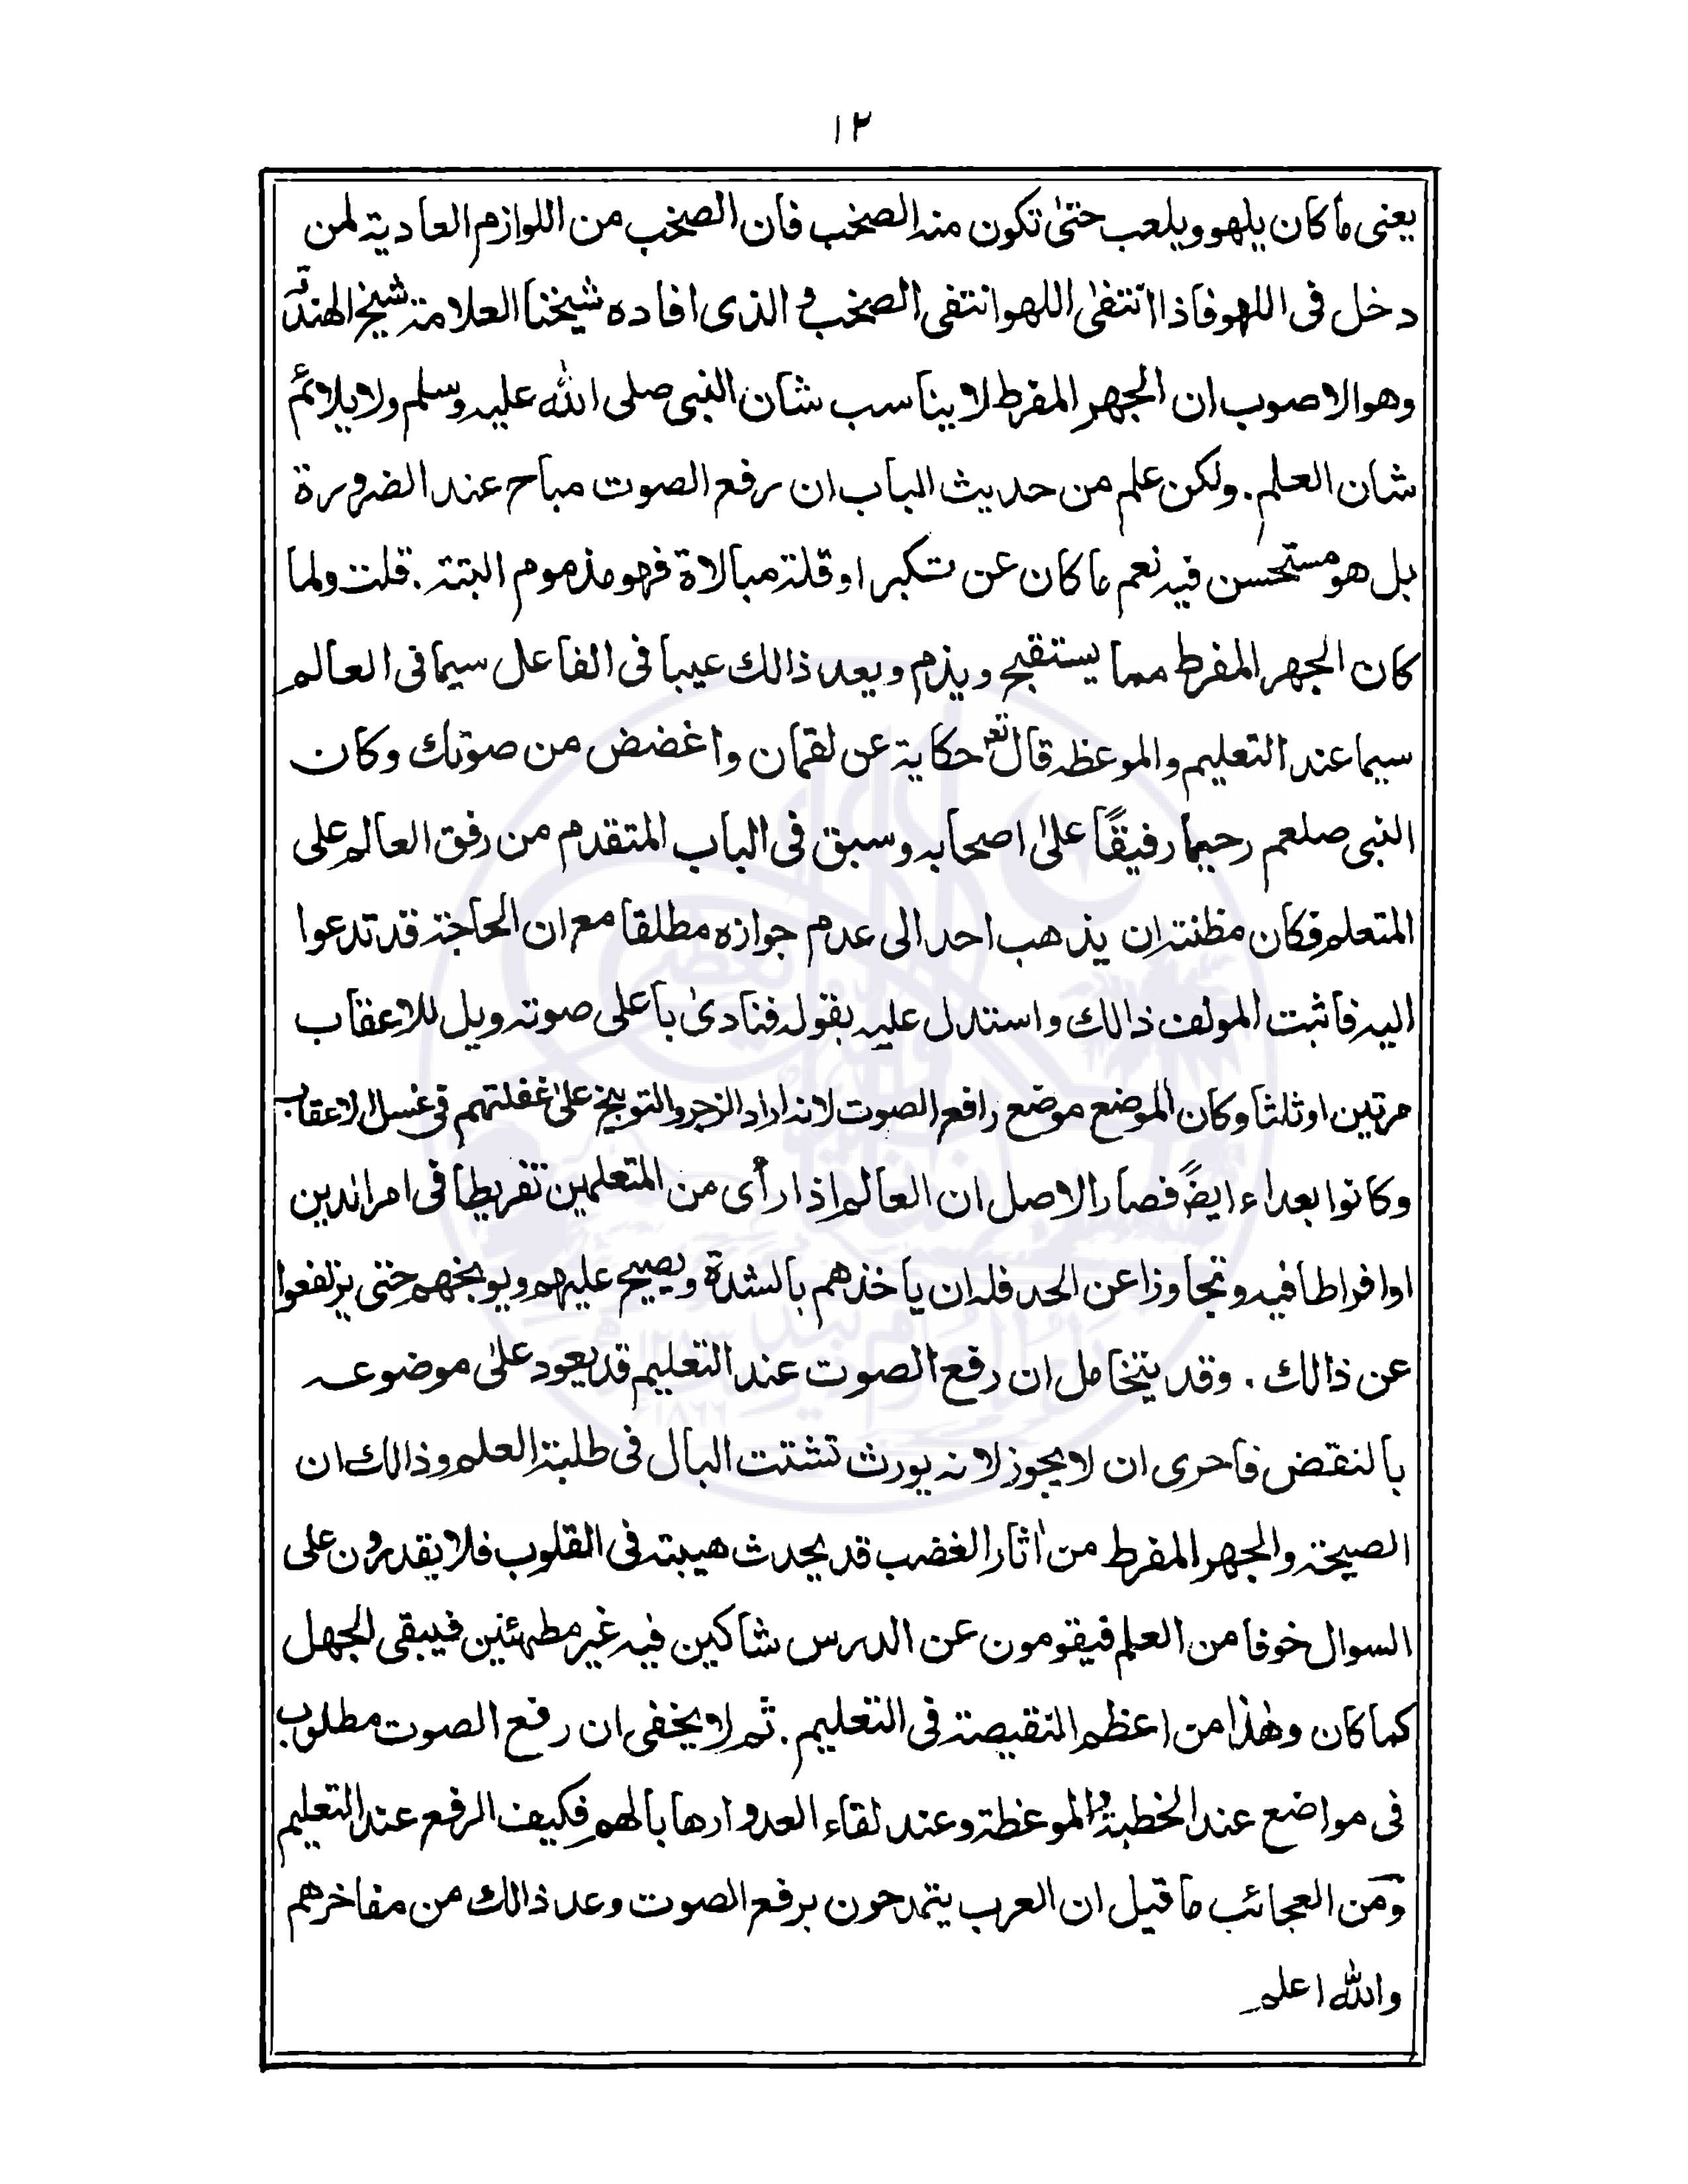 ١٢
يعنى ماكان يلهو ويلعب حتىٰ تكون منه الصخب فان الصخب من اللوازم العادية لمن
دخل فى اللهو فاذا انتفىٰ اللهو انتفى الصخب و الذى افاده شيخنا العلامة شيخ الهند
وهو الاصوب ان الجهر المفرط لا يناسب شان النبى صلى الله عليه وسلم ولا يلائم
شان العلم. ولكن علم من حديث الباب ان رفع الصوت مباح عند الضرورة
بل هو مستحسن فيه نعم ما كان عن تكبر او قلة مبالاة فهو مذموم البتة. قلت ولما
كان الجهر المفرط مما يستقبح ويذم ويعد ذالك عيبا فى الفاعل سيما فى العالم
سيما عند التعليم والموعظه قال تعـ حكاية عن لقمان واغضض من صوتك وكان
النبى صلعم رحيما رفيقًا علىٰ اصحابه وسبق فى الباب المتقدم من رفق العالم على
المتعلم فكان مظنة ان يذهب احد الى عدم جوازه مطلقا مع ان الحاجة قد تدعوا
اليه فاثبت المولف ذالك واستدل عليه بقوله فنادىٰ باعلى صوته ويل للاعقاب
مرتين اوثلثا وكان الموضع موضع رافع الصوت لانه اراد الزجر والتوبيخ علىٰ غفلتهم فى غسل الاعقاب
وكانوا بعداء ايضًا فصار الاصل ان العالم اذا رأى من المتعلمين تفريطا فى امر الدين
او افراطا فيه وتجاوزا عن الحد فله ان ياخذهم بالشدة ويصيح عليهم ويوبخهم حتى يرتفعوا
عن ذالك. وقد يتخامل ان رفع الصوت عند التعليم قد يعود علىٰ موضوعه
بالنقض فاحرى ان لا يجوز لانه يورث تشتت البال فى طلبة العلم وذالك ان
الصيحة والجهر المفرط من اٰثار الغضب قد يحدث هيبته فى القلوب فلا يقدرون على
السوال خوفا من العلم فيقومون عن الدرس شاكين فيه غير مطمئنين فيبقى الجهل
كما كان وهٰذا من اعظم النقيصة فى التعليم. ثم لا يخفى ان رفع الصوت مطلوب
فى مواضع عند الخطبة والموعظة وعند لقاء العدو ارهابا لهم فكيف الرفع عند التعليم
ومن العجائب ما قيل ان العرب يتمدحون برفع الصوت وعد ذالك من مفاخرهم
والله اعلم